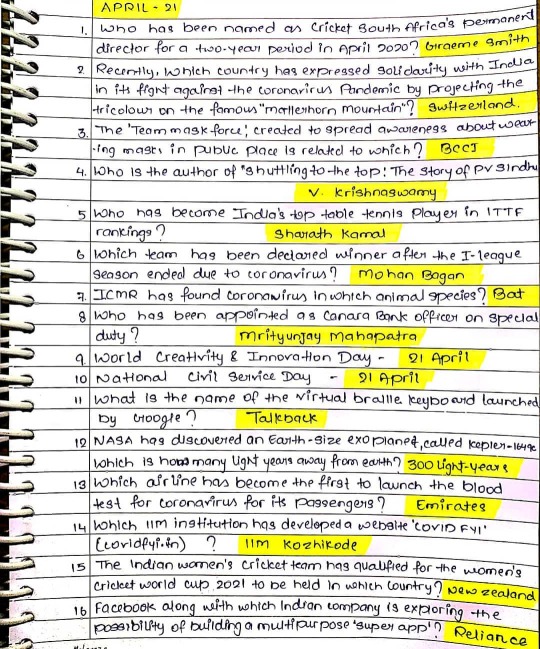 APRIL - 21
1. Who has been named as Cricket South Africa's permanent
director for a two-year period in April 2020? Graeme Smith
2. Recently, which country has expressed solidarity with India
in its fight against the coronavirus Pandemic by projecting the
tricolour on the famous "matterhorn mountain"? Switzerland.
3. The 'Team mask force', created to spread awareness about wear
-ing masks in public place is related to which? BCCI
4. Who is the author of "Shuttling to the top: The story of PV Sindhu
V. Krishnaswamy
5 Who has become India's top table tennis Player in ITTF
rankings? Sharath Kamal
6 Which team has been declared winner after the I-league
season ended due to coronavirus? Mohan Bagan
7. ICMR has found coronavirus in which animal species? Bat
8 Who has been appointed as Canara Bank officer on special
duty? Mrityunjay Mahapatra
9. World Creativity & Innovation Day - 21 April
10 National Civil Service Day - 21 April
11 What is the name of the virtual braille keyboard launched
by Google? Talkback
12 NASA has discovered an Earth-size exoplanet, called kepler-1649c
which is how many light years away from earth? 300 light-years
13 Which airline has become the first to launch the blood
test for coronavirus for its passengers? Emirates
14 Which IIM institution has developed a website 'COVID FYI'
(covidfyi.in) ? IIM Kozhikode
15 The Indian women's cricket team has qualified for the women's
cricket world cup 2021 to be held in which country? New zealand
16 Facebook along with which Indian company is exploring the
possibility of building a multipurpose 'super app'? Reliance